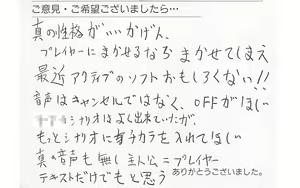 ご意見・ご希望ございましたら…
真の性格がいいかげん、
プレイヤーにまかせるなら まかせてしまえ
最近アクティブのソフトおもしろくない!!
音声はキャンセルではなく、OFFがほしい
シナリオはよく出来ていたが、
もっとシナリオに力を入れてほしい
真の音声も無し 主人公=プレイヤー
テキストだけでもと思う
ありがとうございました。